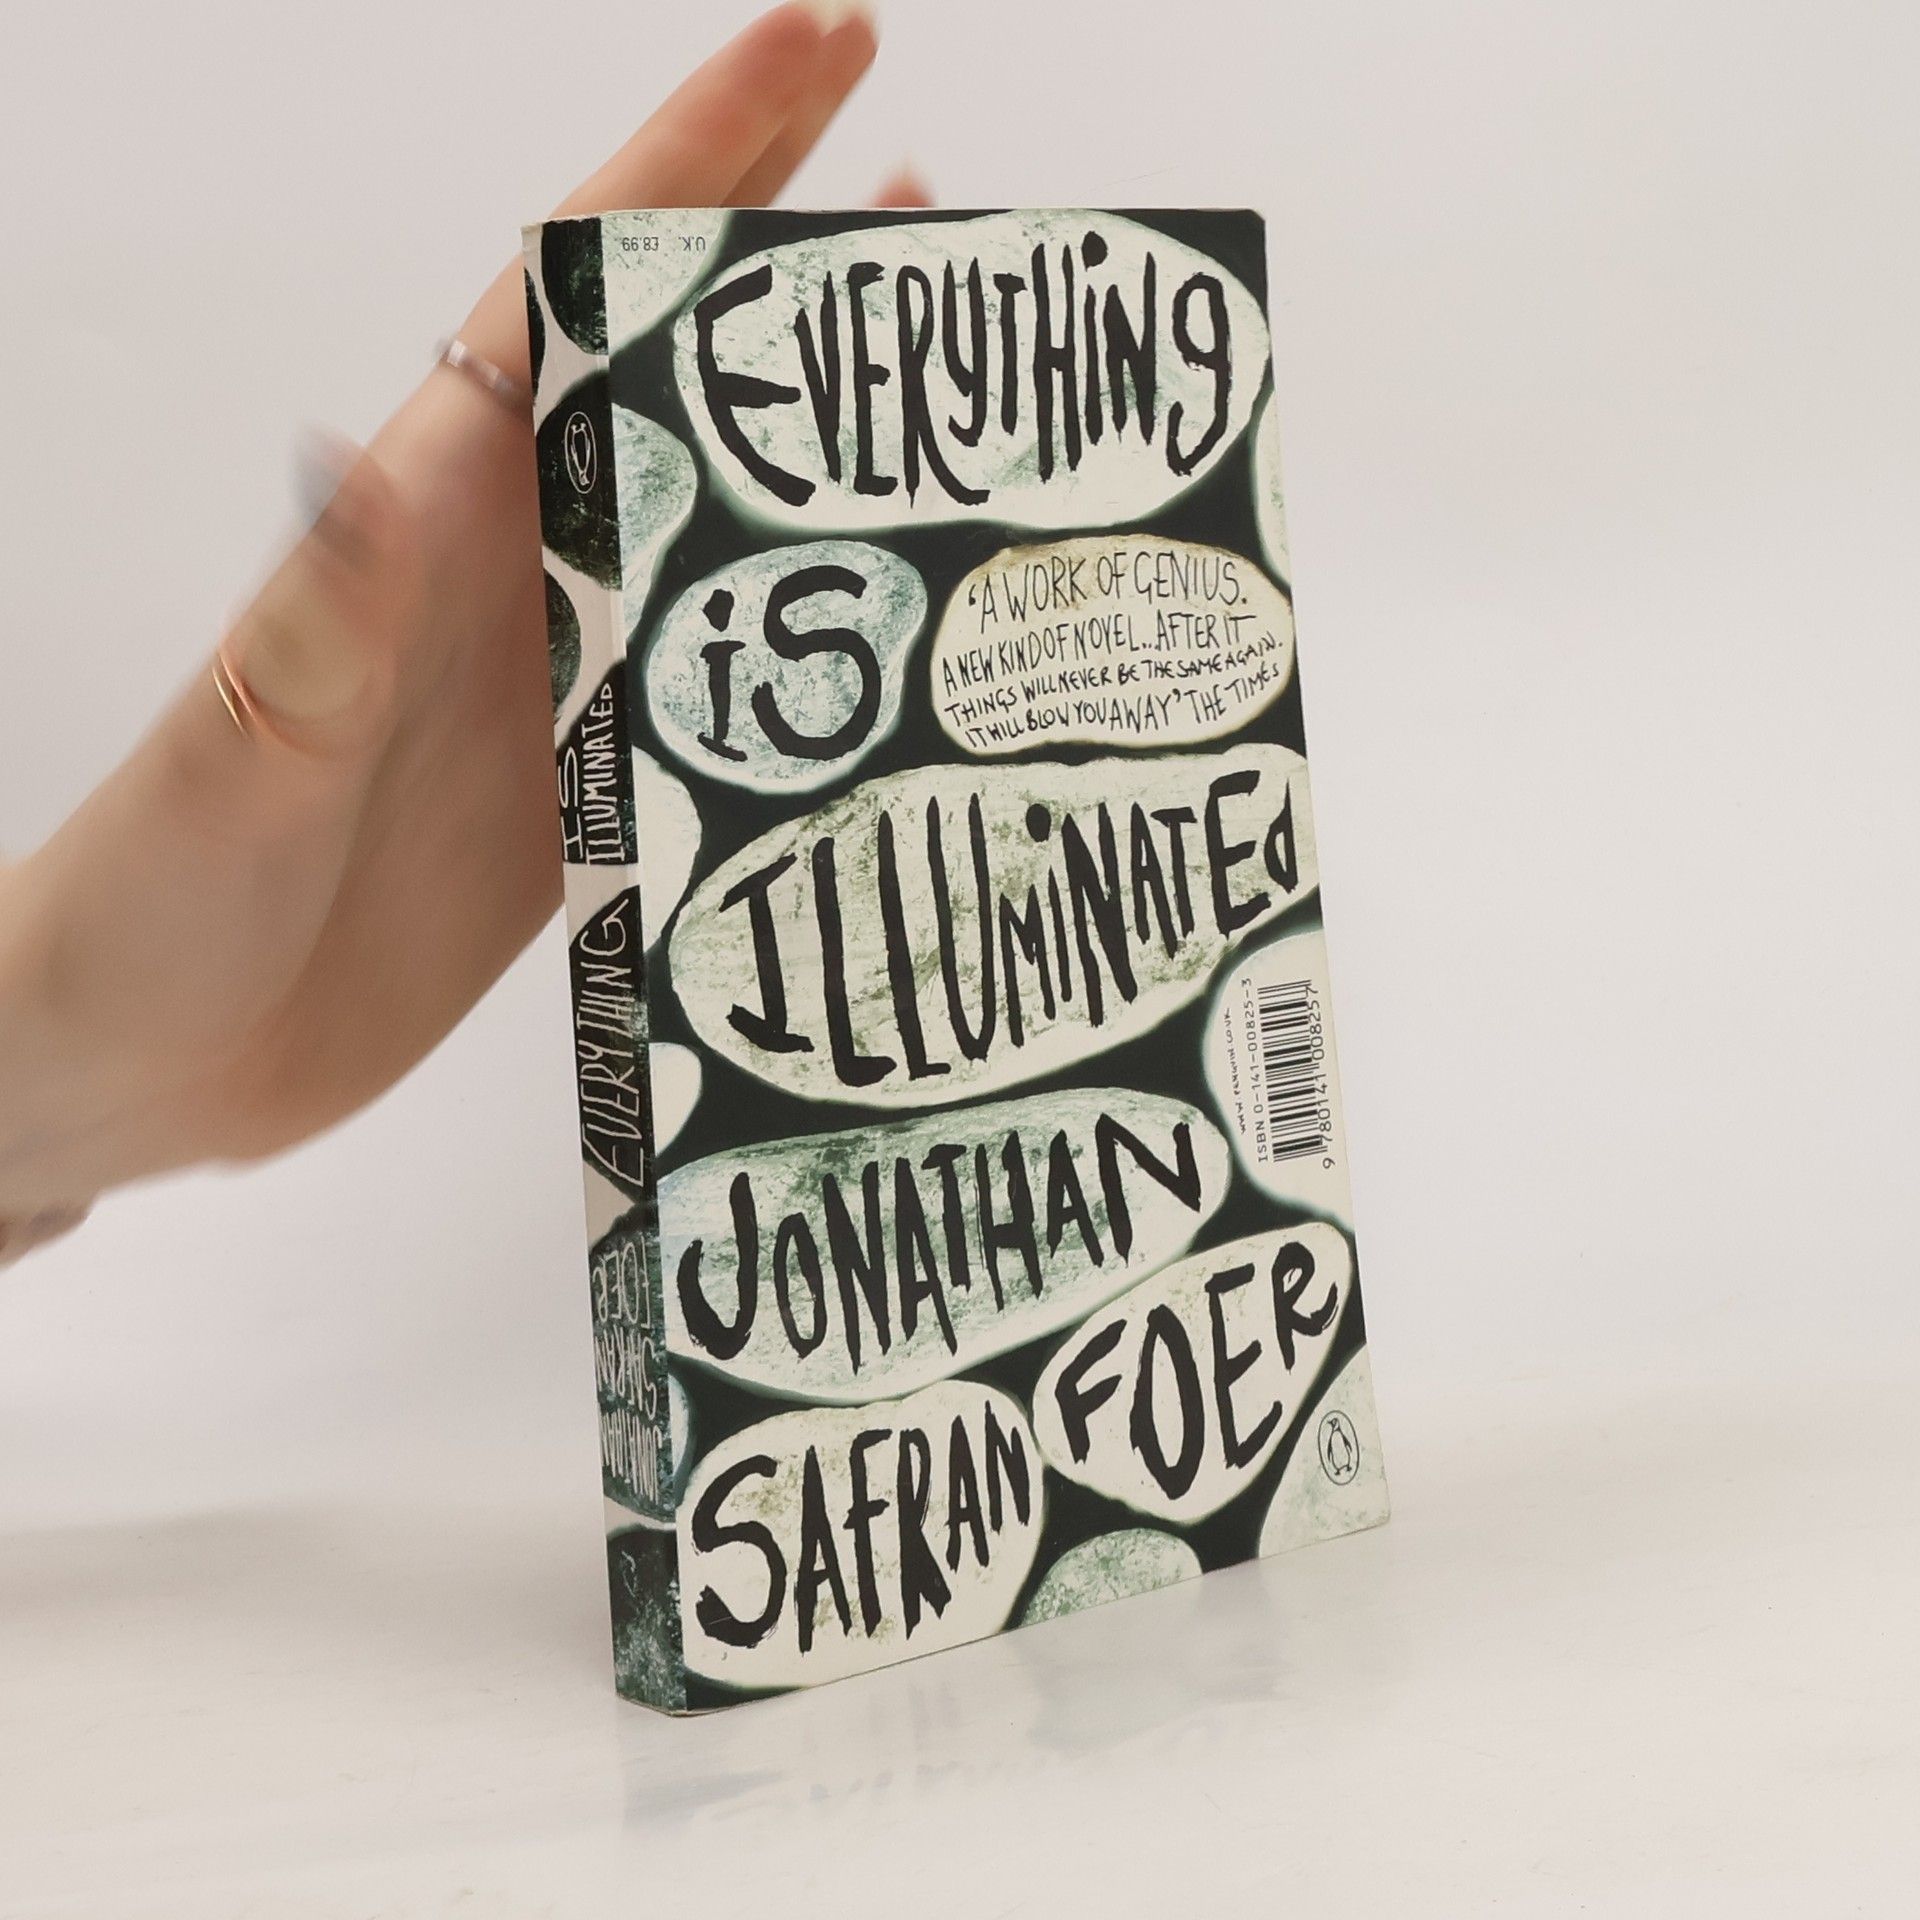 U.K. £8.99
EVERYTHiNg
iS
'A WORK OF GENIUS.
A NEW KIND OF NOVEL... AFTER IT
THINGS WILL NEVER BE THE SAME AGAIN.
IT WILL BLOW YOU AWAY' THE TIMES
ILLUMiNATEd
JONATHAN
SAFRAN
FOER
WWW.PENGUIN.CO.UK
ISBN 0-141-00825-3
9 780141 008257
EVERYTHING
IS
ILLUMINATED
JONATHAN
SAFRAN
FOER